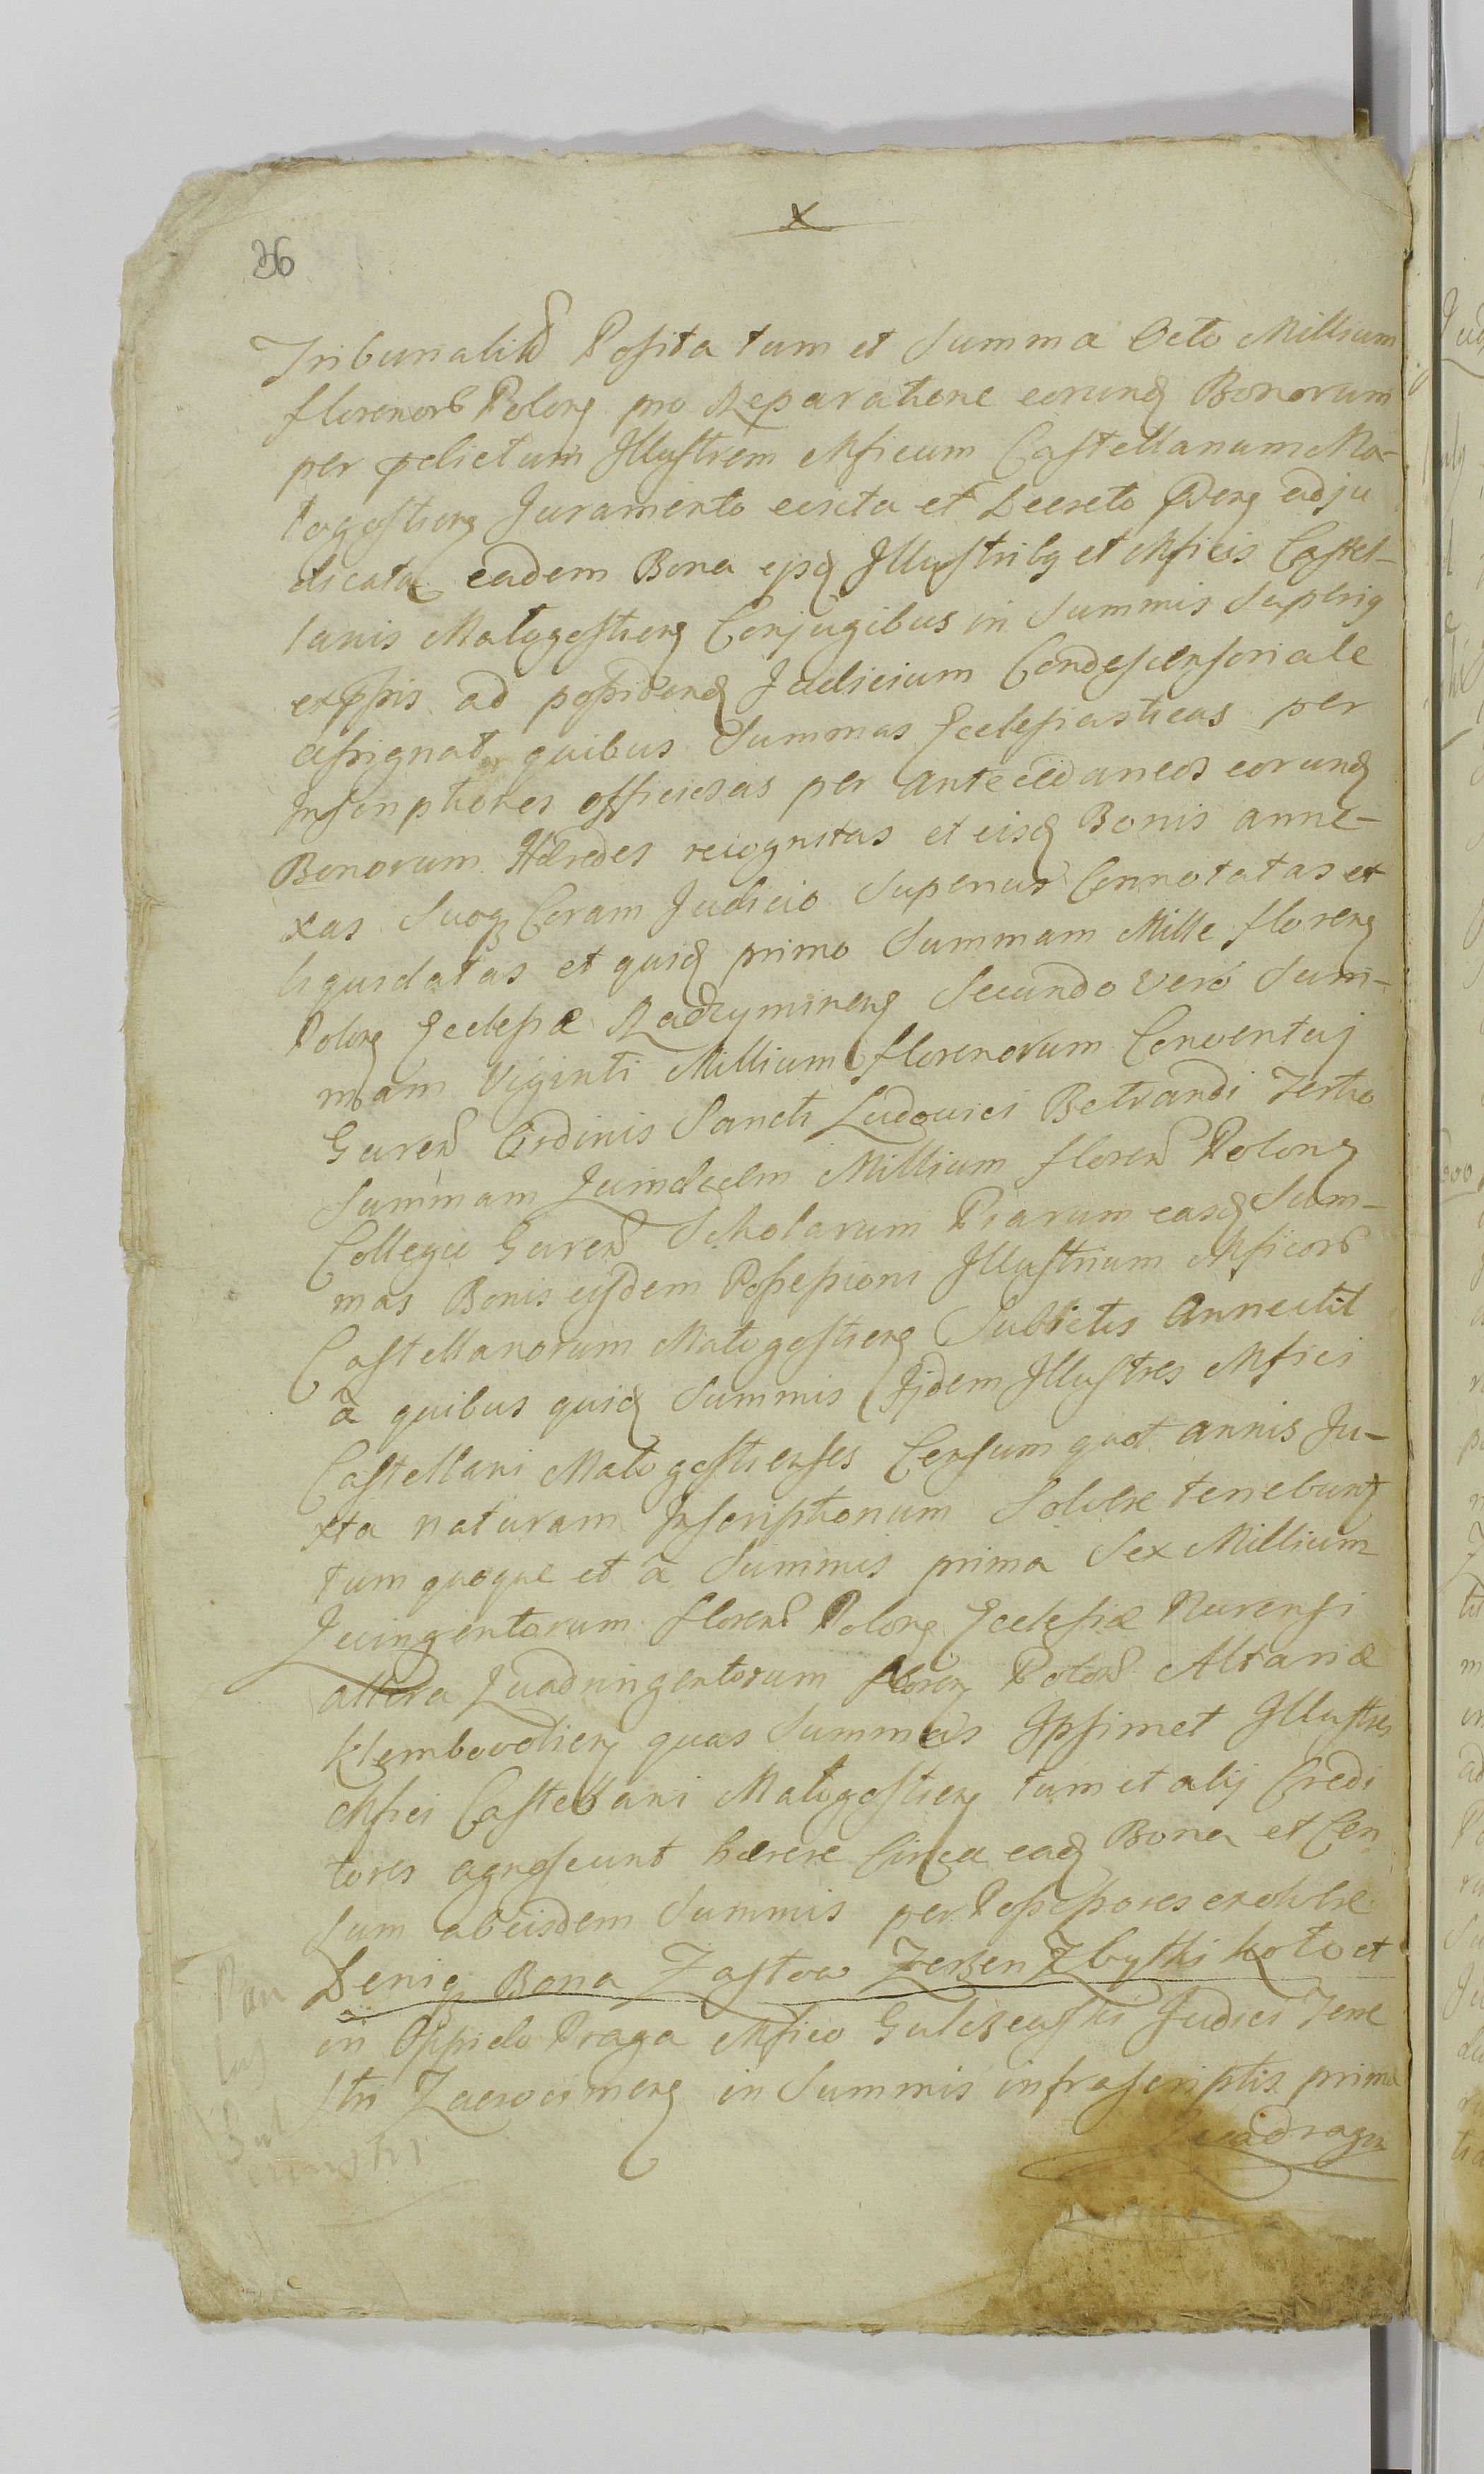 X
36
Tribunalib Posita tum et Summa Octo Millium
florenor Polonq pro Reparatione eorunq Bonorum
per relictum Illustrem Mficum Castellanum Ma-
logostienq Juramento evicta et Decreto adju
dicata eadem Bona ejsq Illustribq et Mficis Castel-
lanis Malogostienq Conjugibus in Summis Suprius
expssis ad possidenq Judicium Condescensoriale
assignat quibus Summas Ecclesiasticas per
Inscriptiones officiosas per antecedaneos eorunq
Bonorum Hæredes recognitas et eisq Bonis anne-
xas Suoq Coram Judicio Superius Connotatas et
liquidatas et quiq primo Summam Mille florenq
Polonq Ecclesiæ Radzyminenq Secundo vero Sum-
mam Viginti Millium florenorum Conventuj
Guren Ordinis Sancti Ludovici Betrandi Tertio
Summam Quindecim Millium floren Polonq
Collegio Guren Scholarum Piarum easq Sum-
mas Bonis eisdem Possessioni Illustrium Mficor
Castellanorum Malogostienq Subiectis Annectit
à quibus quiq Summis Ijdem Illustres Mfici
Castellani Malogostienses Censum quot annis Ju-
xta naturam Inscriptionum Solvere tenebunt
tum quoque et à Summis prima Sex Millium
Quingentorum floren Polonq Ecclesiæ Nurensi
altera Quadringentorum floren Polon Altariæ
Klembovolienq quas Summas Ipsimet Illustres
Mfici Castellani Malogostienq tum et alij Credi
tores agnoscunt hærere Circa eaq Bona et Cen
sum ab eisdem Summis per Possessores exolvere
Deniq Bona Zastow Zerzen Zbytki Koto et
in Oppido Praga Mfico Gulczewski Judici Terre
stri Zacrocimenq in Summis infrascriptis prima
Quadragin
Pau
lus
Gul
czewski